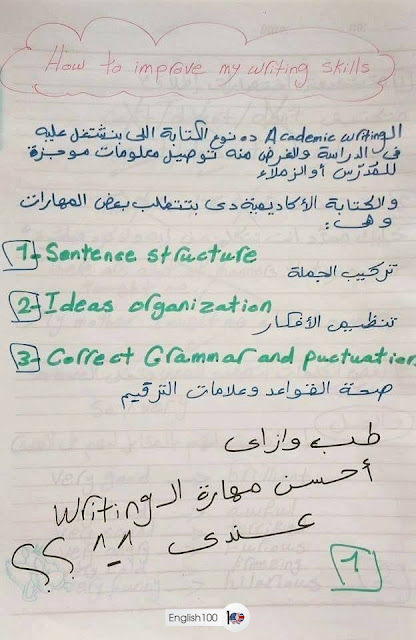 How to improve my writing skills
الـ Academic writing ده نوع الكتابة اللى بنشتغل عليه
فى الدراسة والغرض منه توصيل معلومات موجزة
للمُدرّس أو الزملاء
والكتابة الأكاديمية دى بتتطلب بعض المهارات
وهى:
1- Sentence structure
تركيب الجملة
2- Ideas organization
تنظيم الأفكار
3- Correct Grammar and puctuation
صحة القواعد وعلامات الترقيم
طب وازاى
أحسن مهارة الـ Writing
عندى ^_^ ؟؟
1
English100